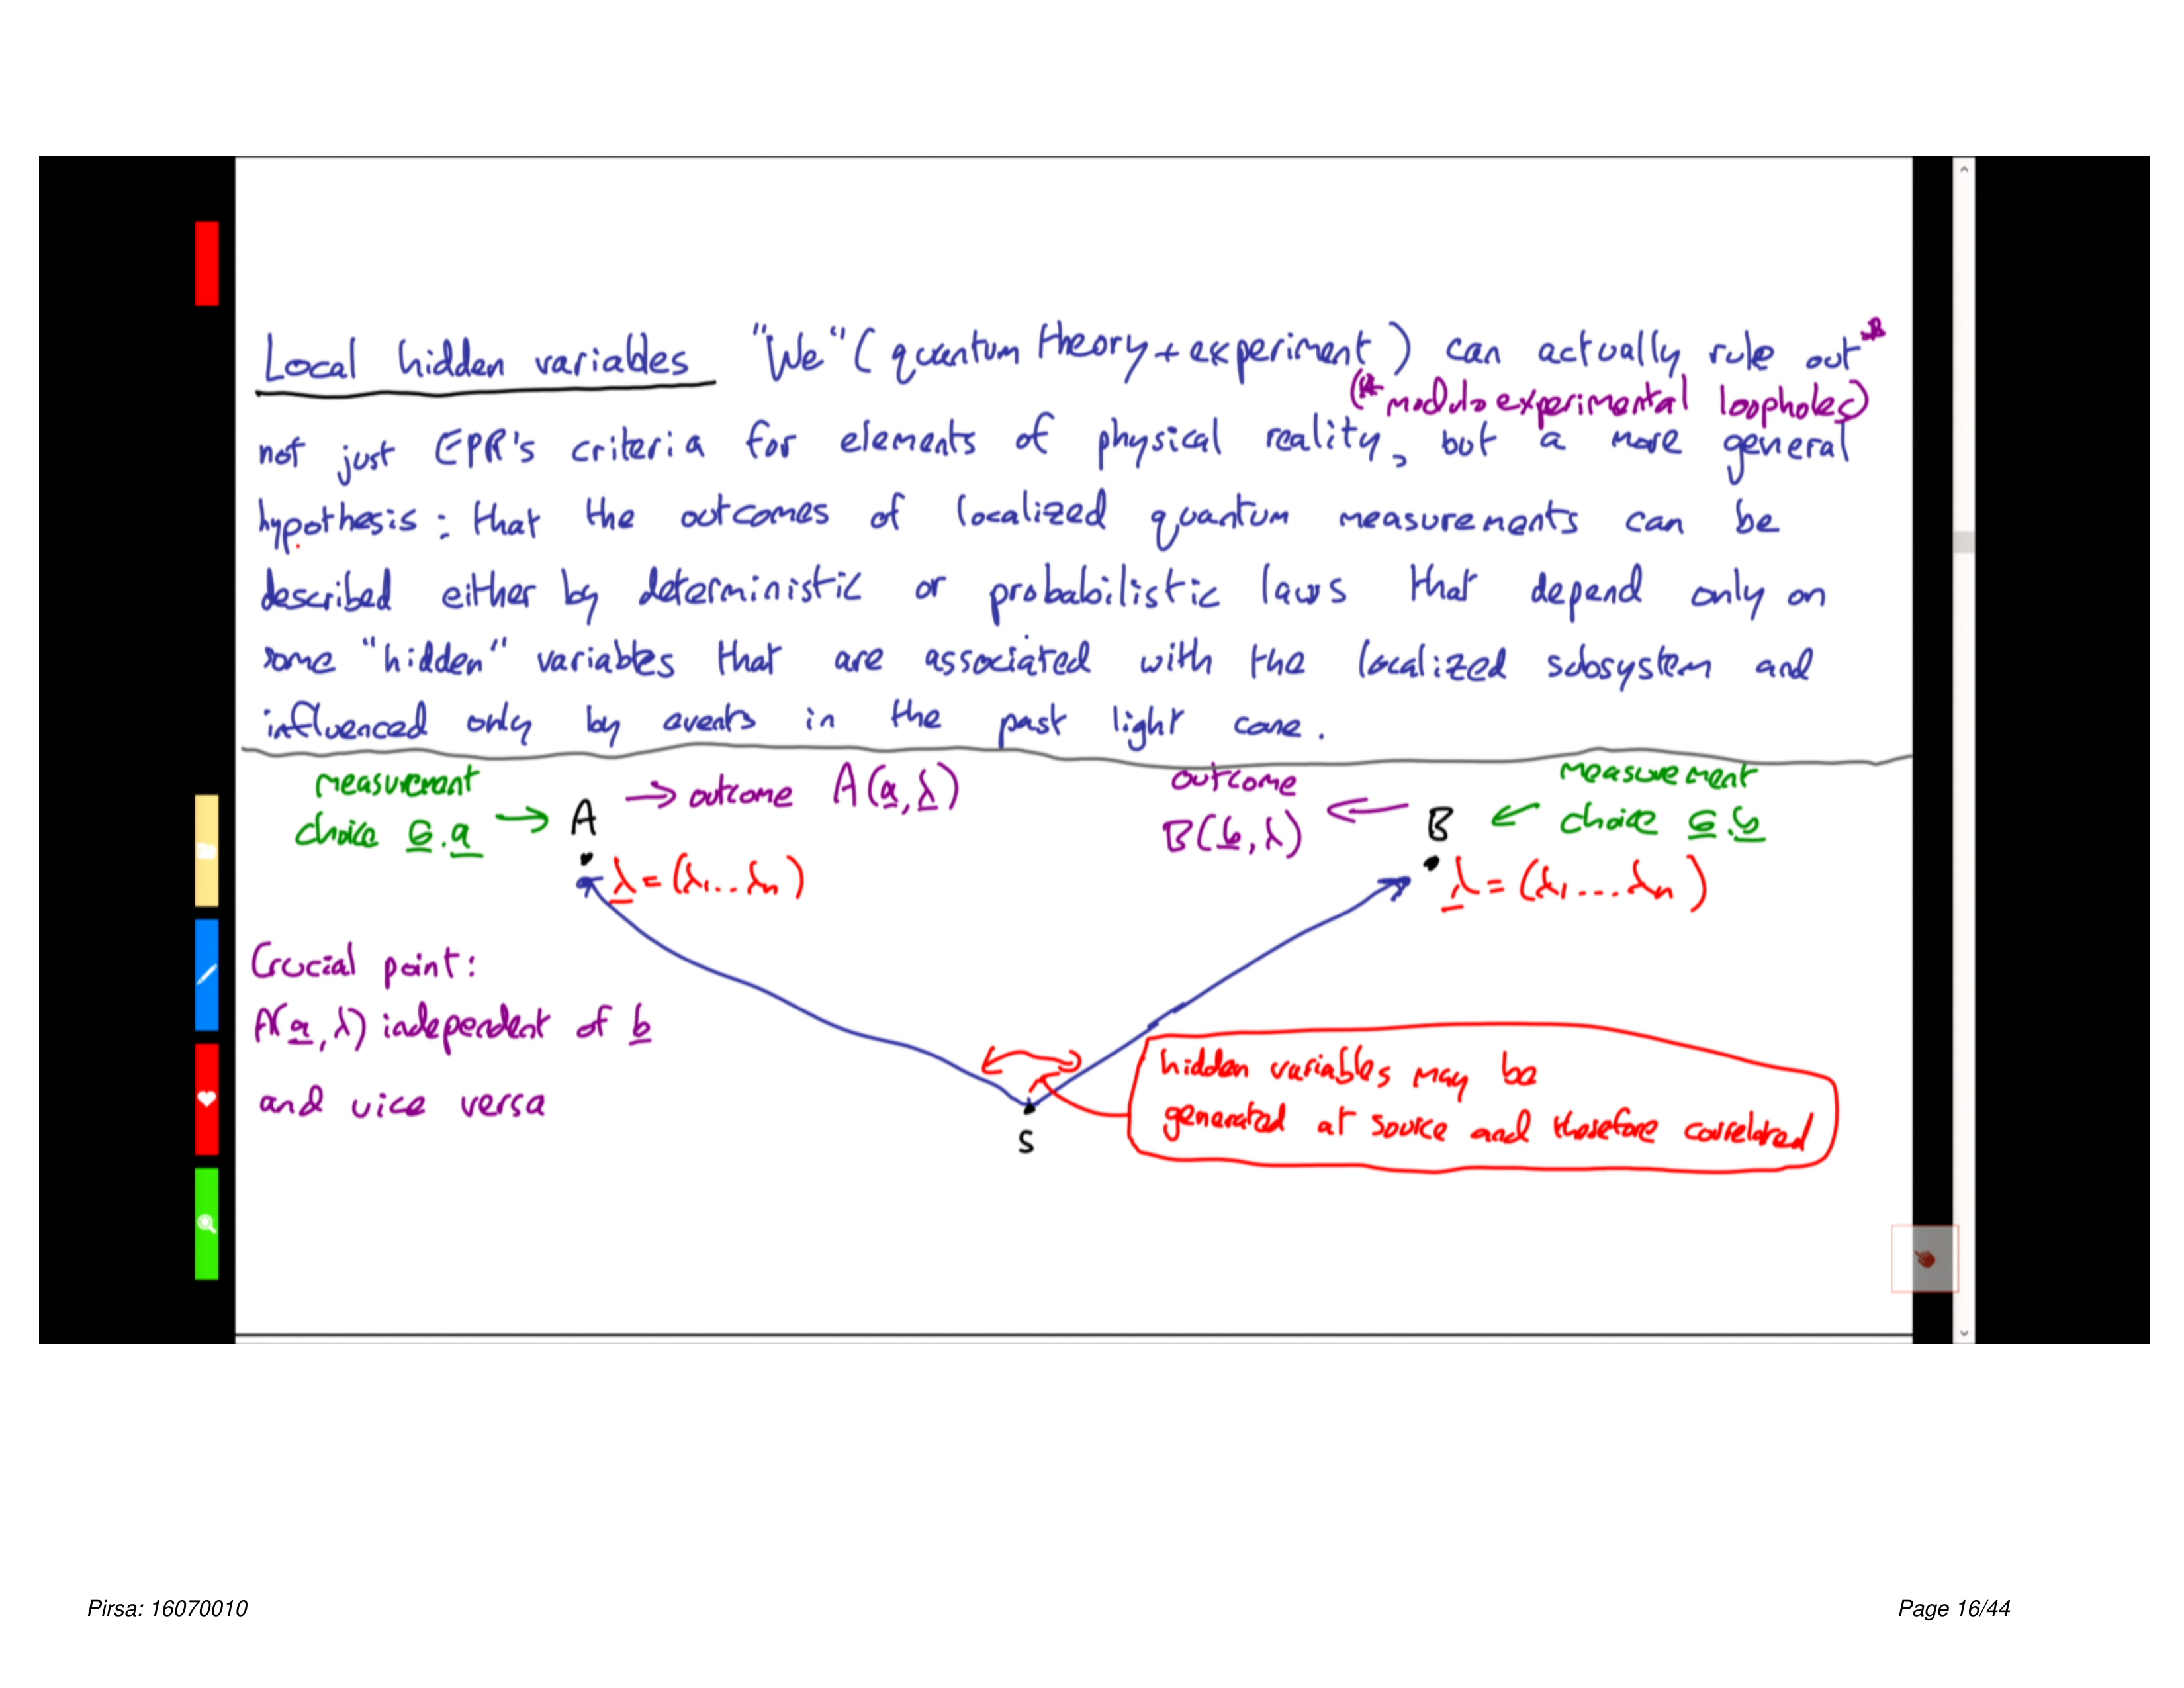 Local hidden variables "We" (quantum theory + experiment) can actually rule out*
(* modulo experimental loopholes)
not just EPR's criteria for elements of physical reality, but a more general
hypothesis: that the outcomes of localized quantum measurements can be
described either by deterministic or probabilistic laws that depend only on
some "hidden" variables that are associated with the localized subsystem and
influenced only by events in the past light cone.
measurement
choice σ.a → A → outcome A(a, λ)
outcome
B(b, λ) ← B ← measurement
choice σ.b
λ = (λ1... λn)
λ = (λ1... λn)
Crucial point:
A(a, λ) independent of b
and vice versa
hidden variables may be
generated at source and therefore correlated
S
Pirsa: 16070010
Page 16/44